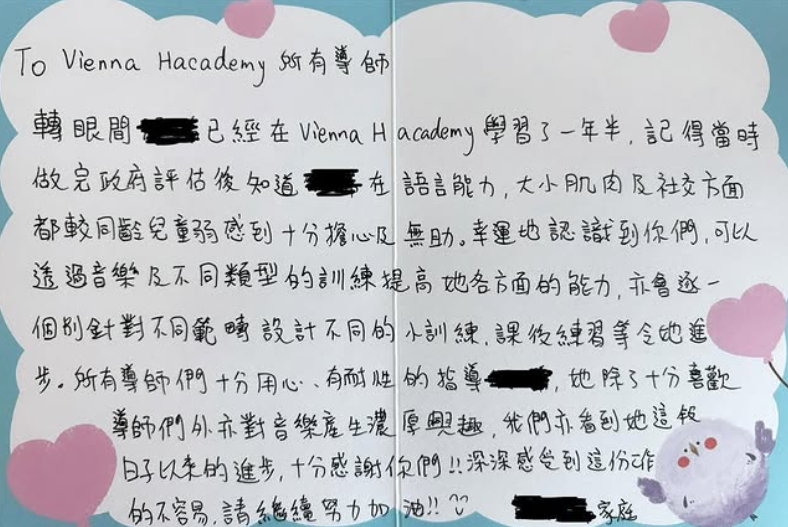 To Vienna Hacademy 所有導師
轉眼間 已經在 Vienna Hacademy 學習了一年半, 記得當時
做完政府評估後知道 在語言能力, 大小肌肉及社交方面
都較同齡兒童弱感到十分擔心及無助。幸運地認識到你們, 可以
透過音樂及不同類型的訓練提高她各方面的能力, 亦會逐一
個別針對不同範疇設計不同的小訓練, 課後練習等令她進
步。所有導師們十分用心、有耐性的指導 , 她除了十分喜歡
導師們外亦對音樂產生濃厚興趣, 我們亦看到她這段
日子以來的進步, 十分感謝你們!! 深深感受到這份工作
的不容易, 請繼續努力加油!!
家庭